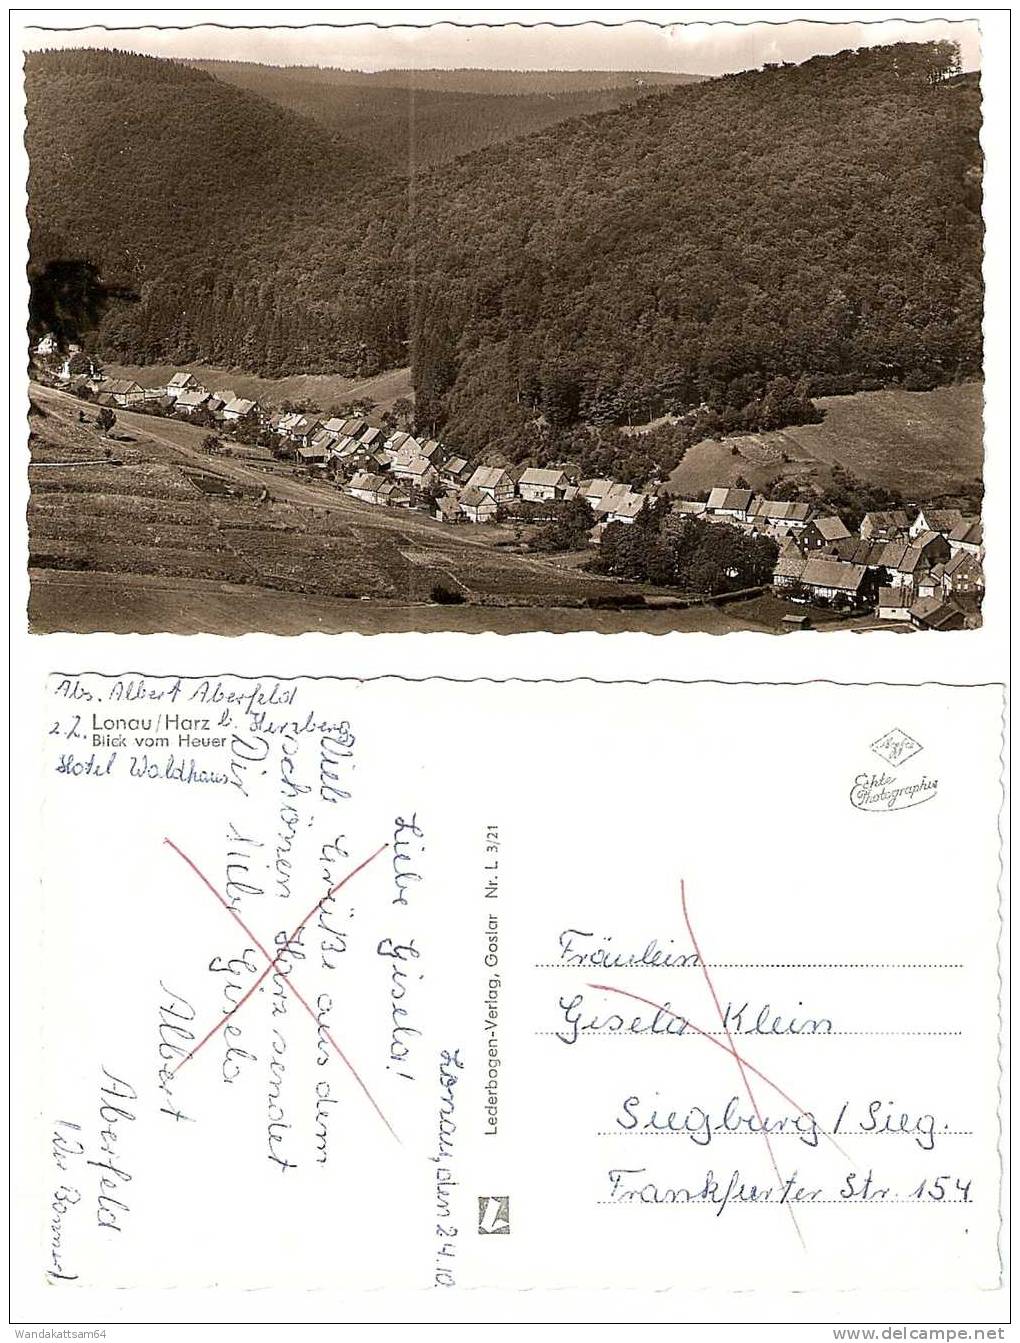 Abs. Albert Aberfeld
z.Z. Lonau/Harz b. Herzberg
Blick vom Heuer
Hotel Waldhaus
Lonau, den 24.10.
Liebe Gisela!
Viele Grüße aus dem
schönen Harz sendet
Dir liebe Gisela
Albert
Aberfeld
Lederbogen-Verlag, Goslar Nr. L 3/21
Agfa
Echte
Photographie
Fräulein
Gisela Klein
Siegburg / Sieg.
Frankfurter Str. 154
Wandakattsam64
www.delcampe.net